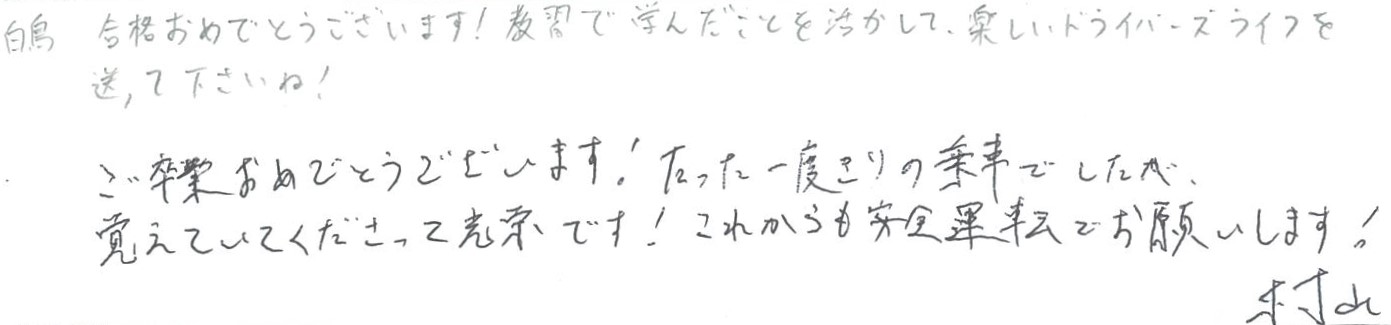 白鳥 合格おめでとうございます!教習で学んだことを活かして、楽しいドライバーズライフを
送って下さいね!
ご卒業おめでとうございます!たった一度きりの乗車でしたが、
覚えていてくださって光栄です!これからも安全運転でお願いします!
村山